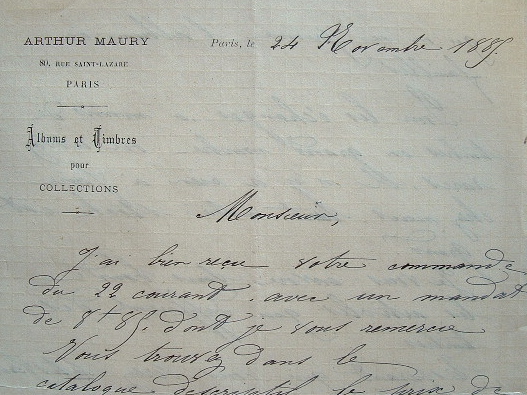 ARTHUR MAURY
80, RUE SAINT-LAZARE
PARIS
Albums et Timbres
pour
COLLECTIONS
Paris, le 24 Novembre 1885.
Monsieur,
J'ai bien reçu votre commande
du 22 courant, avec un mandat
de 8f 85. dont je vous remercie
Vous trouvez dans le
catalogue descriptif le prix de